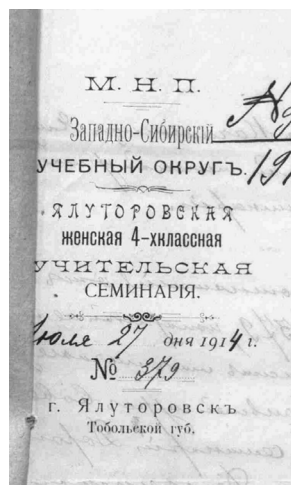 М. Н. П.
Западно-Сибирскій
УЧЕБНЫЙ ОКРУГЪ.
ЯЛУТОРОВСКАЯ
женская 4-хклассная
УЧИТЕЛЬСКАЯ
СЕМИНАРІЯ.
Іюля 27 дня 1914 г.
№ 379
г. Ялуторовскъ
Тобольской губ.